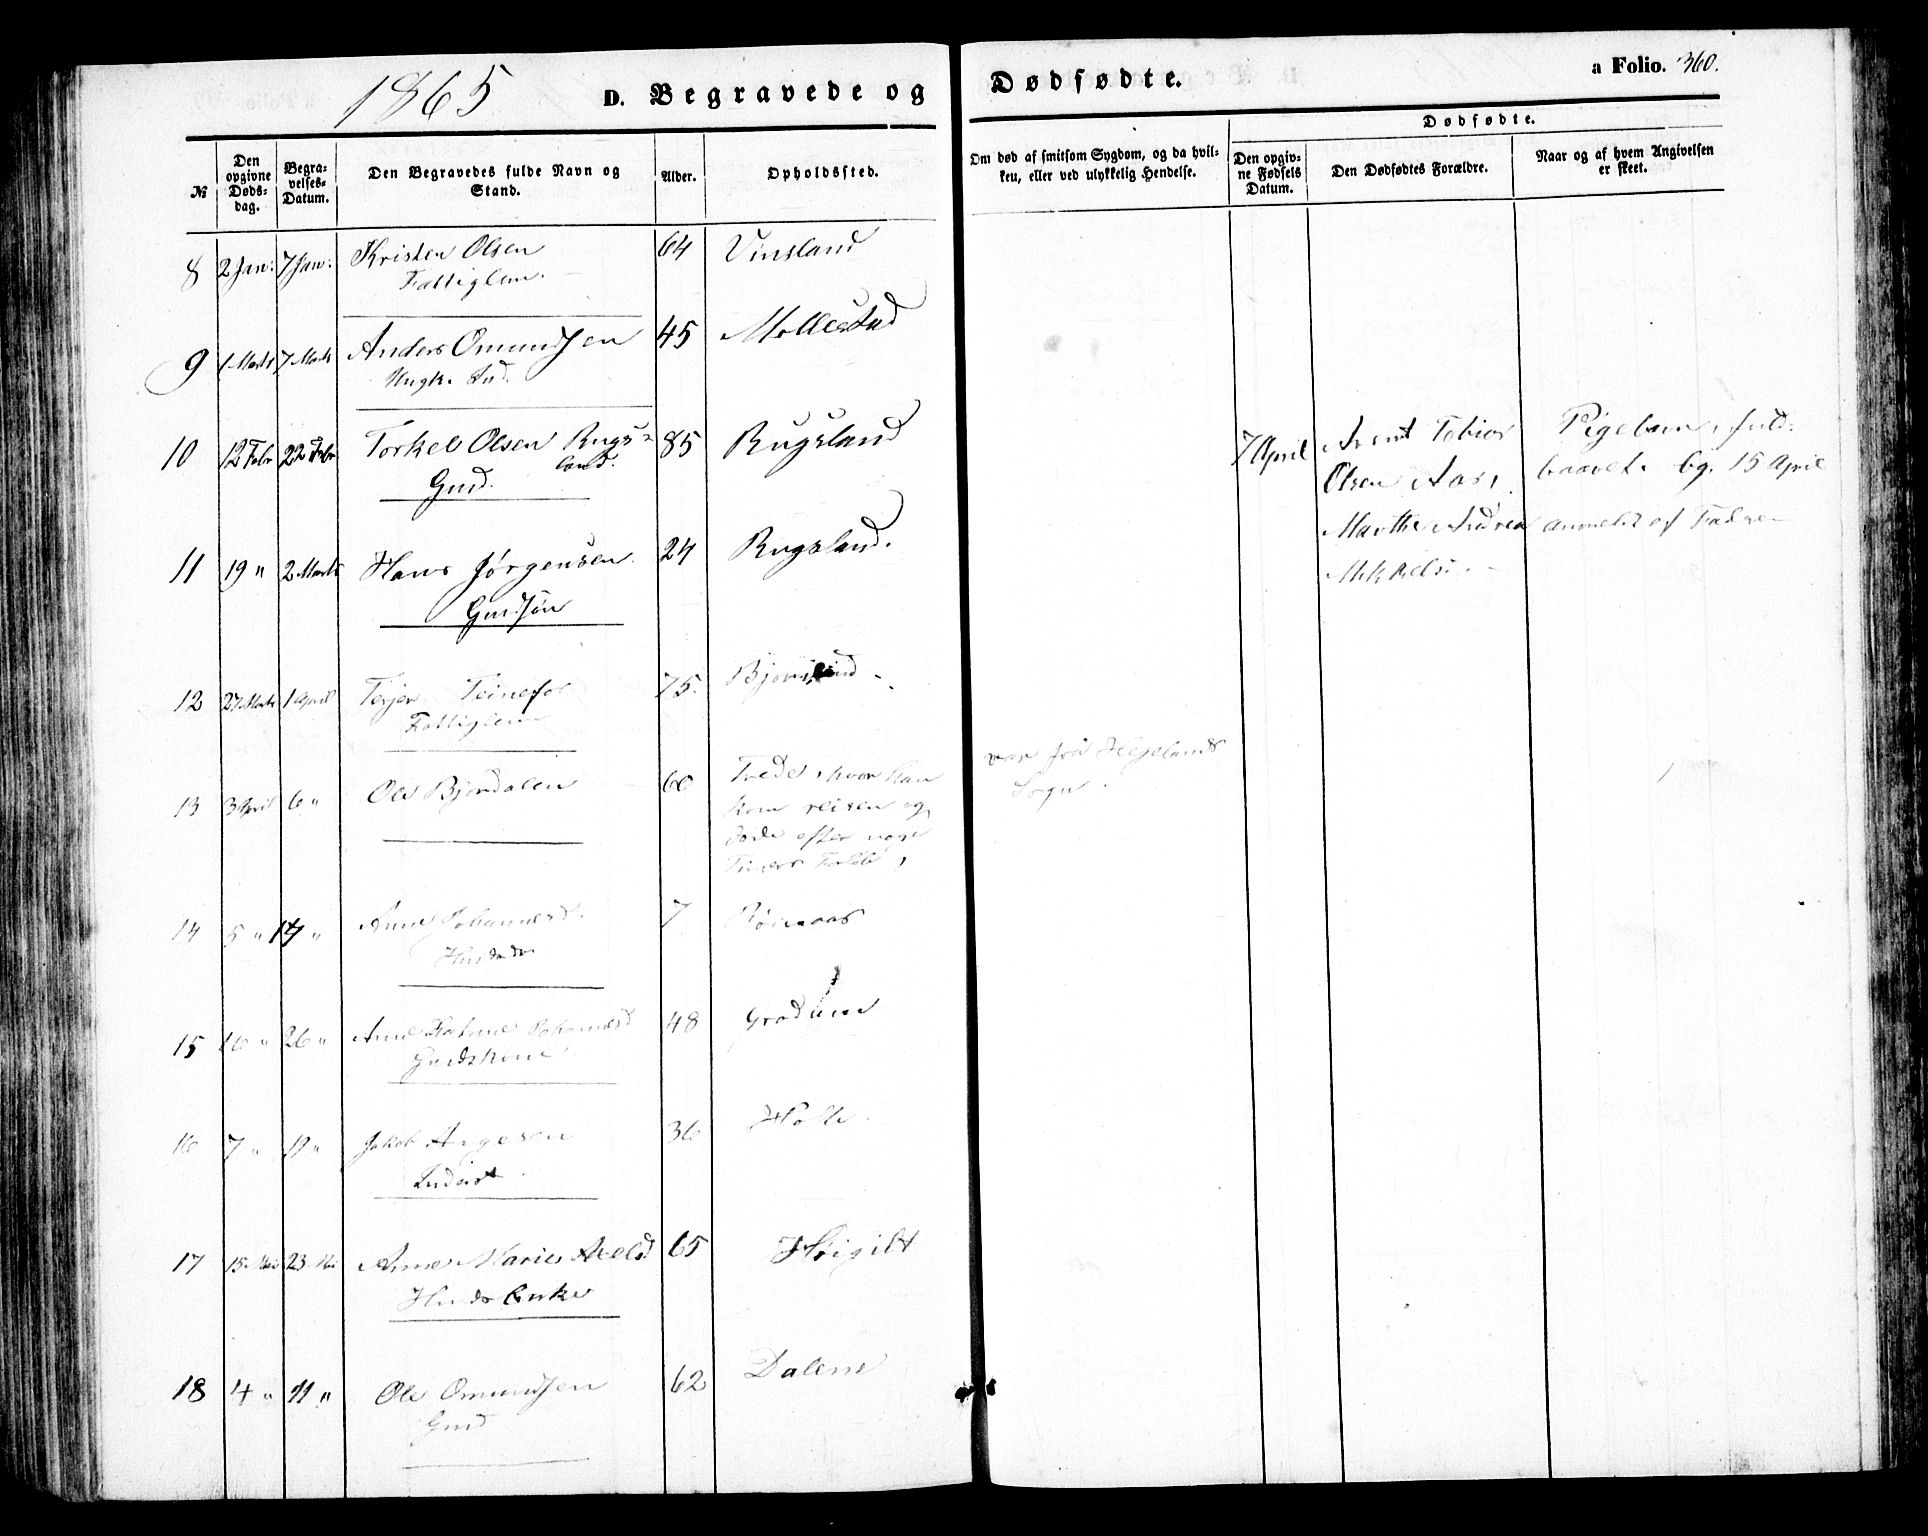 1865
D. Begravede og Dødfødte.
a Folio. 360.
№
Den opgivne Døds-dag.
Begra-velses-Datum.
Den Begravedes fulde Navn og Stand.
Alder.
Opholdssted.
Om død af smitsom Sygdom, og da hvil-ken, eller ved ulykkelig Hendelse.
Dødfødte.
Den opgiv-ne Fødsels Datum.
Den Dødfødtes Forældre.
Naar og af hvem Angivelsen er skeet.
8 2 Jan: 7 Jan: Kristen Olsen 64 Vinsland
Fattiglem.
9 1 Marts 7 Marts Anders Omundsen 45 Mollestad
Ungk. Ind.
10 12 Febr 22 Febr Torkel Olsen Rugs- 85 Rugsland
land.
Gmd.
7 April
Arent Tobias
Olsen Aas,
Marthe Andrea
Mikkelsd.
Pigebarn, fuld-
baaret. bg. 15 April
anmeldt af Faderen
11 19 " 2 Marts Hans Jørgensen 24 Rugsland.
Gmdsøn
12 27 Marts 1 April Terjer 75. Bjorvland
Fattiglem
13 3 April 6 " Ole Bjordalen 60 Trede, hvor han
kom reisen og
døde efter nogle
Timers Forløb,
var fra Hegelands
Sogn
14 5 " 14 " Anne Johannesd. 7
15 16 " 26 " Anne Johannesd 48
Gmdskone
16 7 " 11 " Jakob Aagesen 36 Holte
Inderst
17 15 Mai 23 Mai Anne Marie Axelsd 65 Høigilt
Hmdsenke
18 4 " 11 " Ole Omundsen 62 Dalene
Gmd